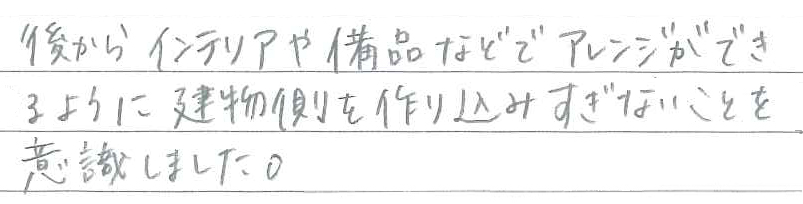 後から インテリアや備品などで アレンジができ
るように 建物側を作り込みすぎないことを
意識しました。